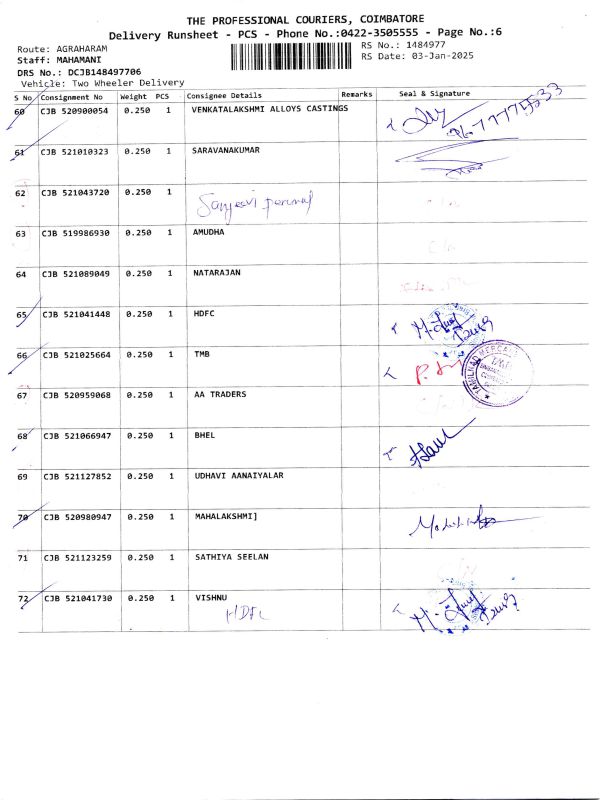 THE PROFESSIONAL COURIERS, COIMBATORE
Delivery Runsheet - PCS - Phone No.:0422-3505555 - Page No.:6
Route: AGRAHARAM
RS No.: 1484977
Staff: MAHAMANI
RS Date: 03-Jan-2025
DRS No.: DCJB148497706
Vehicle: Two Wheeler Delivery
S No Consignment No Weight PCS Consignee Details Remarks Seal & Signature
60 CJB 520900054 0.250 1 VENKATALAKSHMI ALLOYS CASTINGS
61 CJB 521010323 0.250 1 SARAVANAKUMAR
62 CJB 521043720 0.250 1
63 CJB 519986930 0.250 1 AMUDHA
64 CJB 521089049 0.250 1 NATARAJAN
65 CJB 521041448 0.250 1 HDFC
66 CJB 521025664 0.250 1 TMB
67 CJB 520959068 0.250 1 AA TRADERS
68 CJB 521066947 0.250 1 BHEL
69 CJB 521127852 0.250 1 UDHAVI AANAIYALAR
70 CJB 520980947 0.250 1 MAHALAKSHMI]
71 CJB 521123259 0.250 1 SATHIYA SEELAN
72 CJB 521041730 0.250 1 VISHNU
HDFC